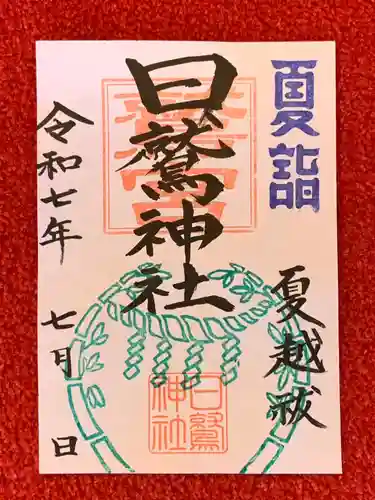 夏詣
夏越祓
日鷲神社
日鷲
神社
令和七年 七月 日